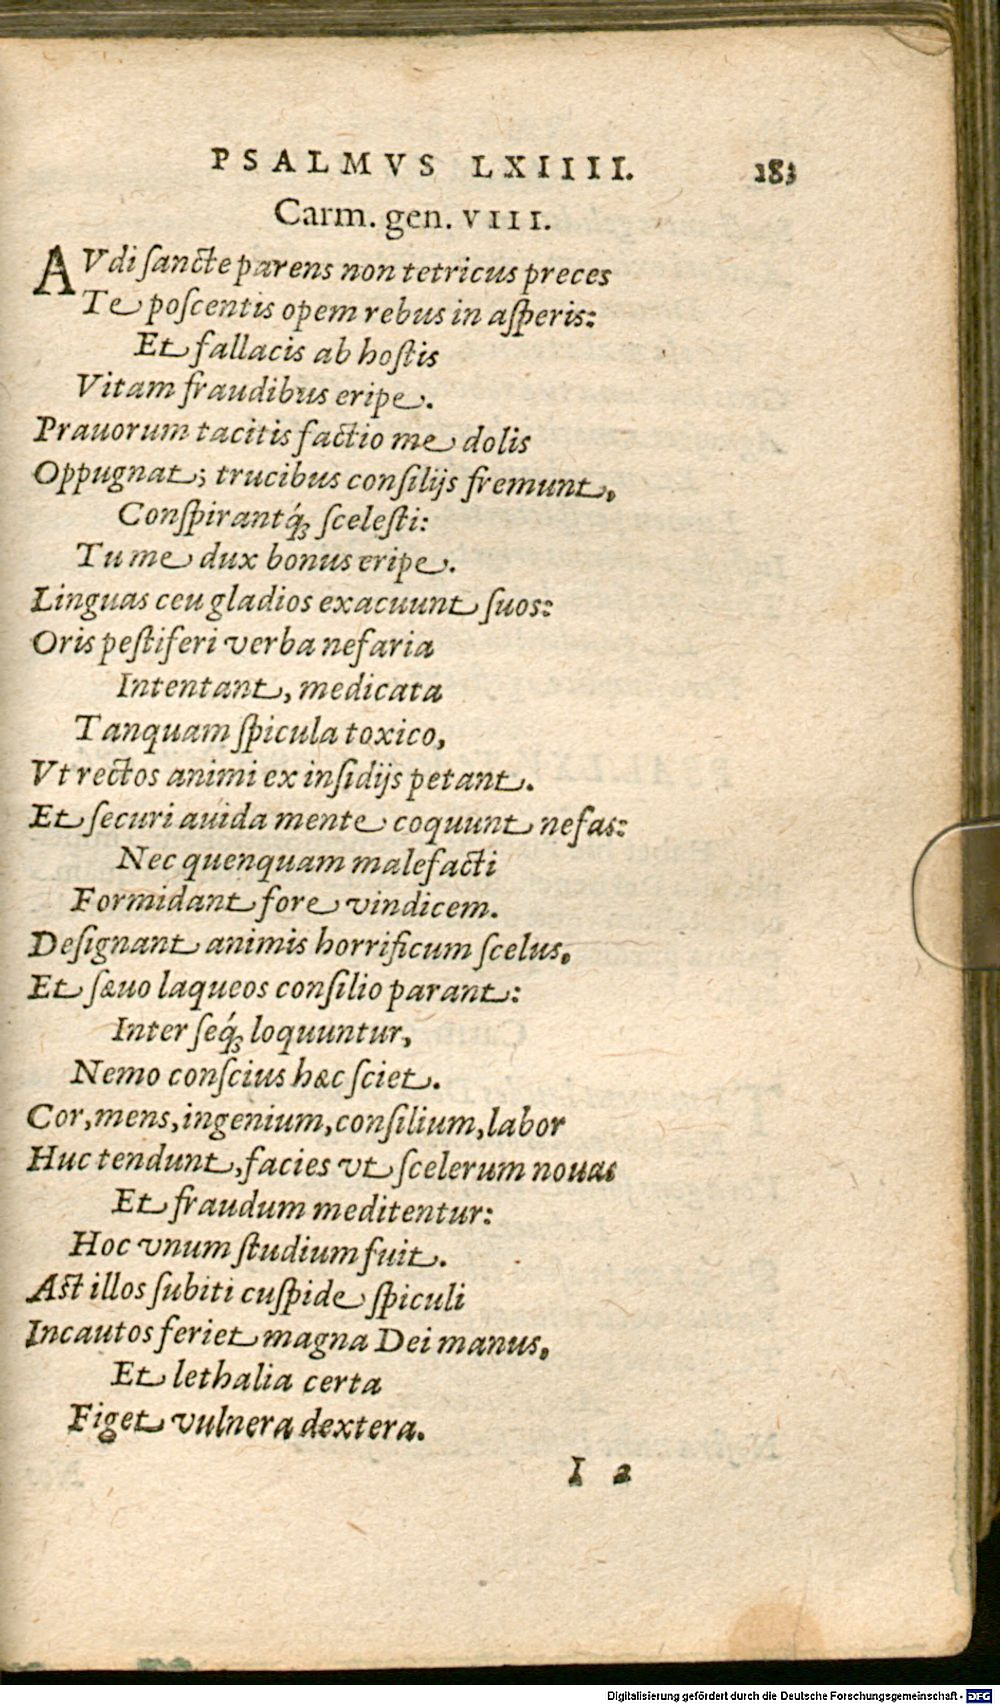 PSALMVS LXIIII. 183
Carm. gen. VIII.
AVdi sancte parens non tetricus preces
Te poscentis opem rebus in asperis:
Et fallacis ab hostis
Vitam fraudibus eripe.
Prauorum tacitis factio me dolis
Oppugnat; trucibus consilijs fremunt,
Conspirantq́ꝫ scelesti:
Tu me dux bonus eripe.
Linguas ceu gladios exacuunt suos:
Oris pestiferi verba nefaria
Intentant, medicata
Tanquam spicula toxico,
Vt rectos animi ex insidijs petant.
Et securi auida mente coquunt nefas:
Nec quenquam malefacti
Formidant fore vindicem.
Designant animis horrificum scelus,
Et sæuo laqueos consilio parant:
Inter seq́ꝫ loquuntur,
Nemo conscius hæc sciet.
Cor, mens, ingenium, consilium, labor
Huc tendunt, facies vt scelerum nouas
Et fraudum meditentur:
Hoc vnum studium fuit.
Ast illos subiti cuspide spiculi
Incautos feriet magna Dei manus,
Et lethalia certa
Figet vulnera dextera.
I 2
Digitalisierung gefördert durch die Deutsche Forschungsgemeinschaft - DFG